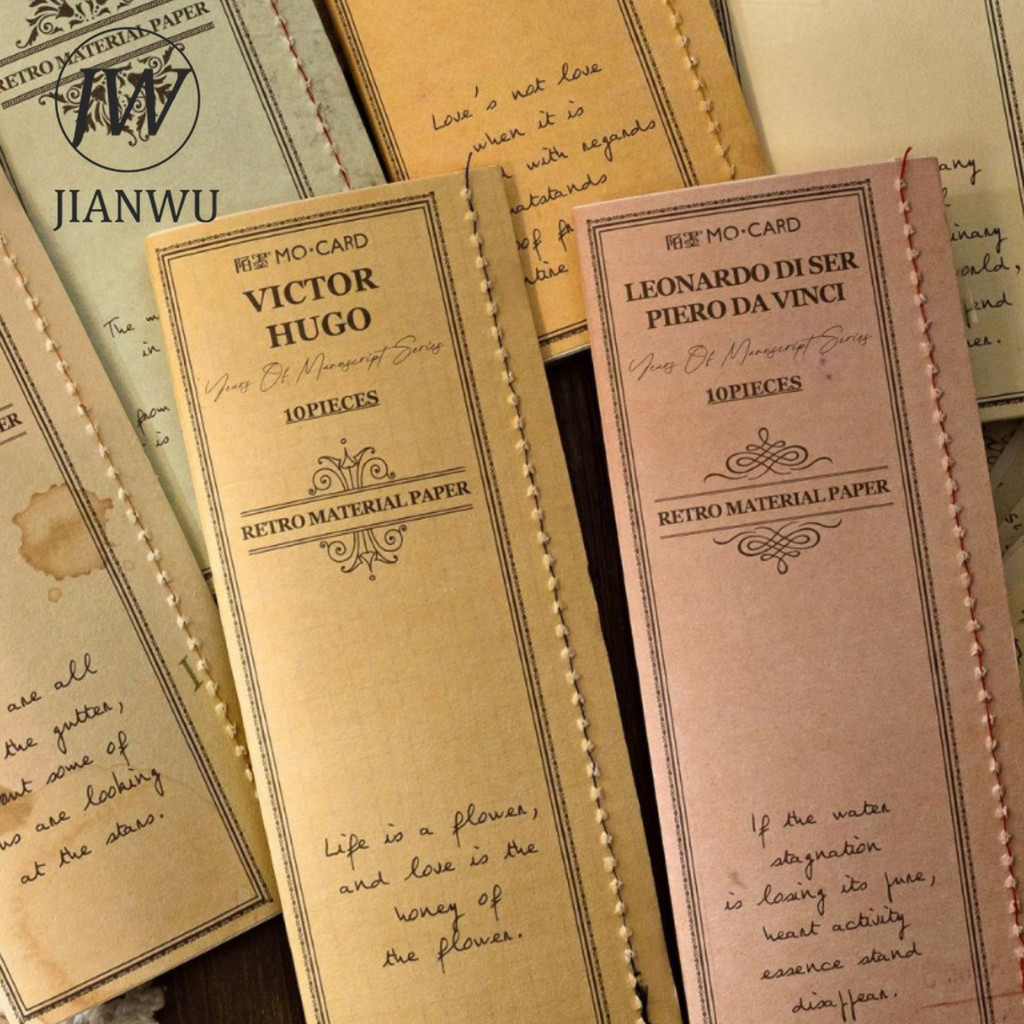 RETRO MATERIAL PAPER
JW
JIANWU
The
in
from
is
Love's not love
when it is
with regards
of
any
are all
the gutter,
some of
us are looking
at the stars.
陌墨 MO·CARD
VICTOR
HUGO
Years Of Manuscript Series
10PIECES
RETRO MATERIAL PAPER
Life is a flower,
and love is the
honey of
the flower.
陌墨 MO·CARD
LEONARDO DI SER
PIERO DA VINCI
Years Of Manuscript Series
10PIECES
RETRO MATERIAL PAPER
If the water
stagnation
is losing its pure,
heart activity
essence stand
disappear.